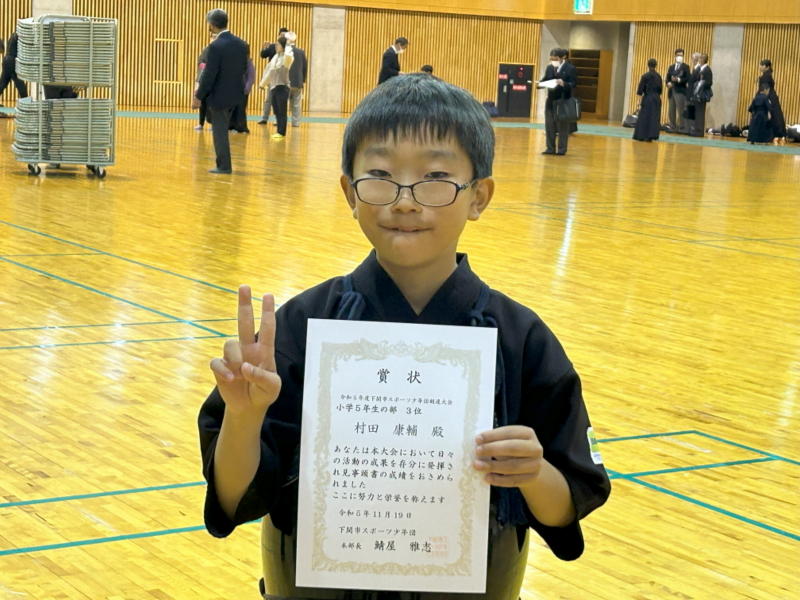 賞状
令和5年度下関市スポーツ少年団剣道大会
小学5年生の部 3位
村田 康輔 殿
あなたは本大会において日々
の活動の成果を存分に発揮さ
れ見事頭書の成績をおさめら
れました
ここに努力と栄誉を称えます
令和5年11月19日
下関市スポーツ少年団
本部長 鯖屋 雅志